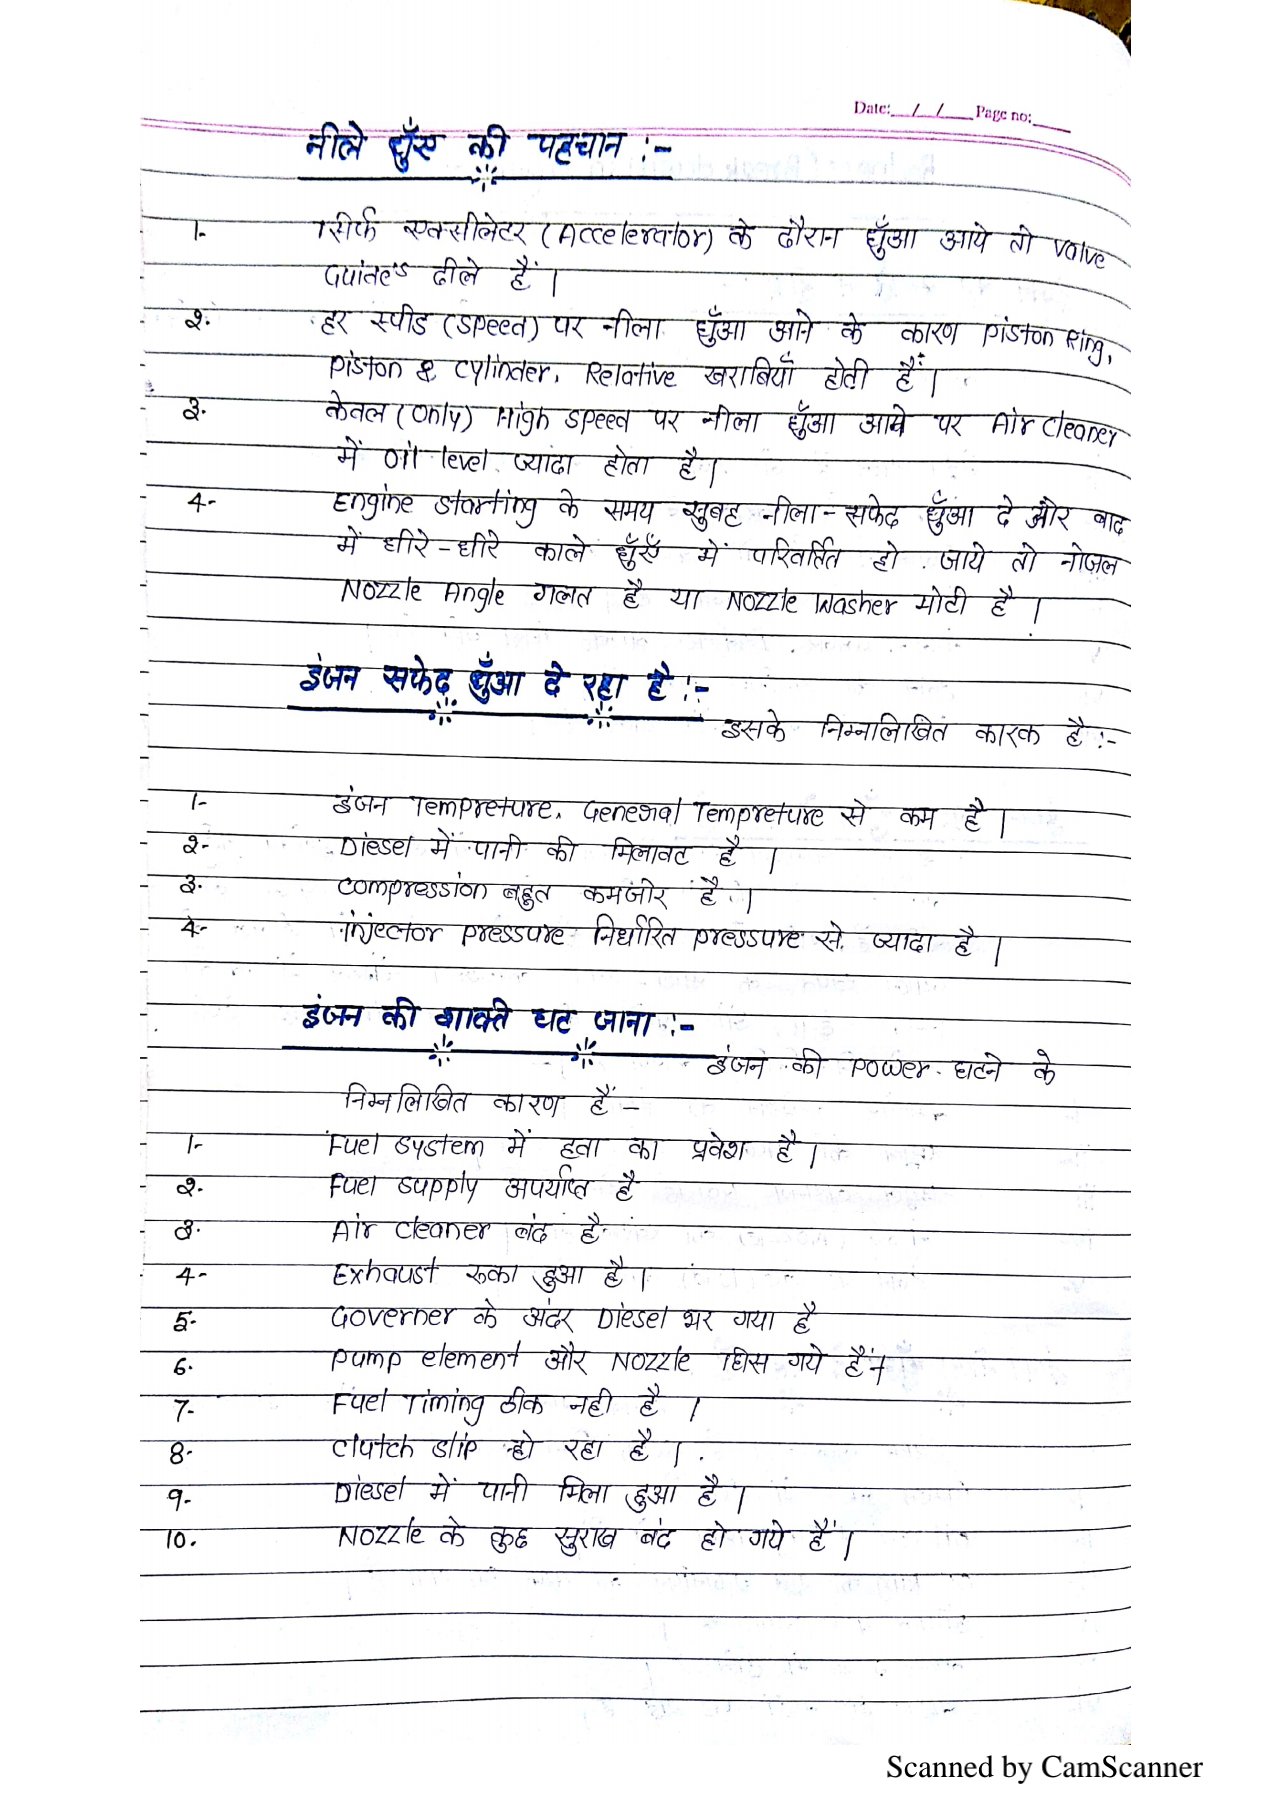 Date:__/__/____ Page no:____
नीले धुँए की पहचान :-
1- सिर्फ एक्सीलेटर (Accelerator) के दौरान धुँआ आये तो valve
Guide's ढीले हैं।
2. हर स्पीड (speed) पर नीला धुँआ आने के कारण piston Ring,
piston & cylinder, Relative खराबियाँ होती हैं।
3. केवल (only) High speed पर नीला धुँआ आये पर Air cleaner
में oil level ज्यादा होता है।
4- Engine starting के समय सुबह नीला - सफेद धुँआ दे और बाद
में धीरे - धीरे काले धुँएँ में परिवर्तित हो जाये तो नोजल
Nozzle Angle गलत है या Nozzle Washer मोटी है।
इंजन सफेद धुँआ दे रहा है :-
इसके निम्नलिखित कारक है :-
1- इंजन Tempreture, General Tempreture से कम है।
2- Diesel में पानी की मिलावट है।
3. compression बहुत कमजोर है।
4- injector pressure निर्धारित pressure से ज्यादा है।
इंजन की शक्ति घट जाना :-
इंजन की power घटने के
निम्नलिखित कारण हैं -
1- Fuel system में हवा का प्रवेश है।
2. Fuel supply अपर्याप्त है
3. Air cleaner बंद है
4- Exhaust रुका हुआ है।
5- Governer के अंदर Diesel भर गया है
6. pump element और Nozzle घिस गये हैं।
7- Fuel Timing ठीक नही है।
8- clutch slip हो रहा है।
9- Diesel में पानी मिला हुआ है।
10. Nozzle के कुछ सुराख बंद हो गये हैं।
Scanned by CamScanner